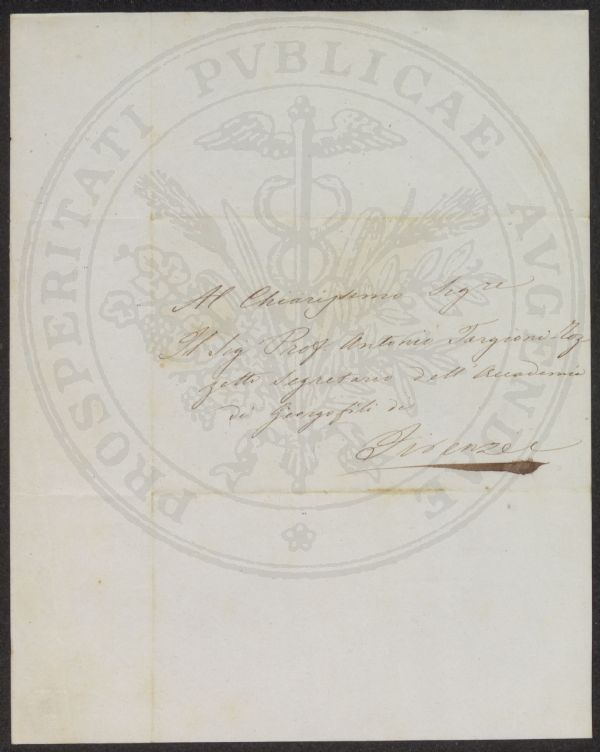 PROSPERITATI PVBLICAE AVGENDAE
Al Chiarissimo Sigre
Il Sig Prof. Antonio Targioni Toz-
zetti Segretario dell'Accademia
dei Georgofili di
Firenze